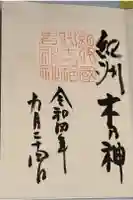 紀州 木の神
令和四年
九月二十四日